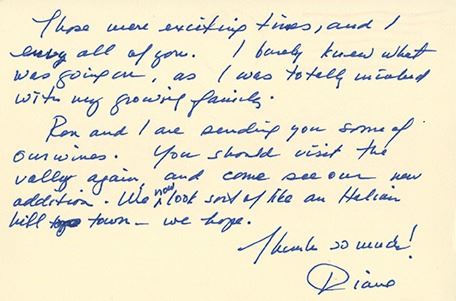 Those were exciting times, and I
envy all of you. I barely knew what
was going on, as I was totally involved
with my growing family.
Ron and I are sending you some of
our wines. You should visit the
valley again, and come see our new
addition. We now look sort of like an Italian
hill town – we hope.
Thanks so much!
Diane